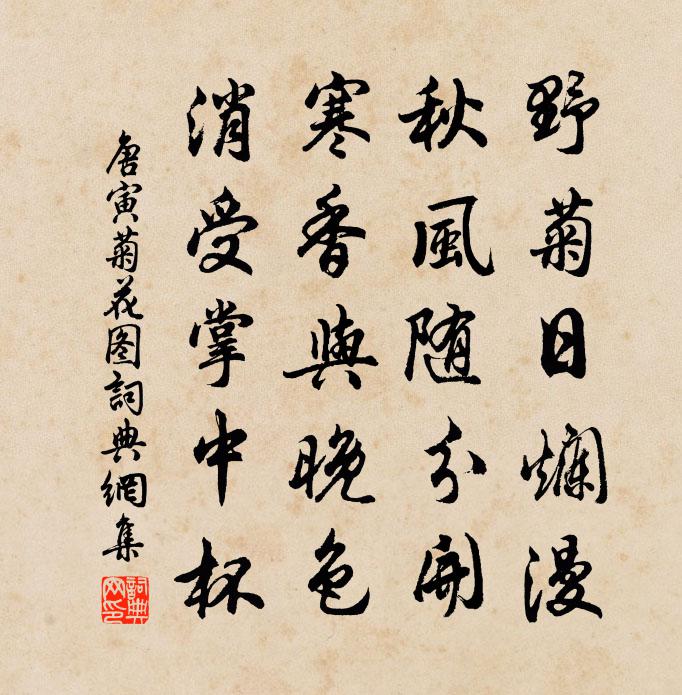 野菊日爛漫
秋風随分開
寒香與晚色
消受掌中杯
唐寅菊花图詞典網集
詞典網印